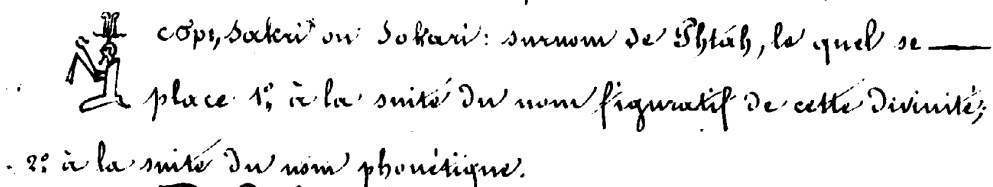 Sakri ou Sokari: surnom de Phtah, le quel se
place 1º, à la suite du nom figuratif de cette Divinité;
2º à la suite du nom phonétique.